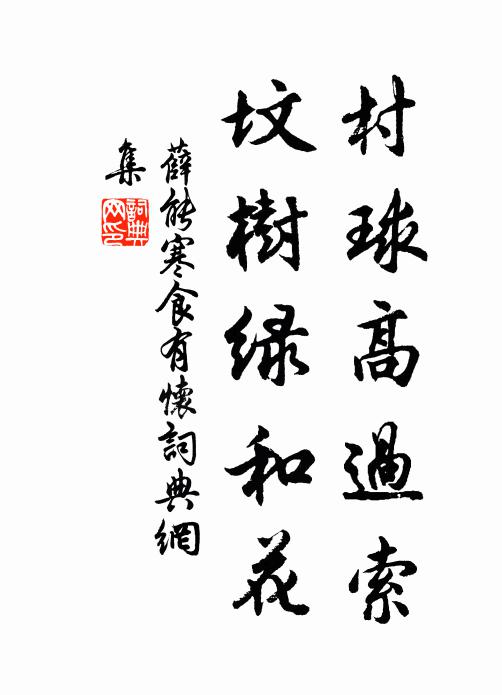 村球高過索
坟樹綠和花
薛能寒食有懷詞典網
集
詞典
网印